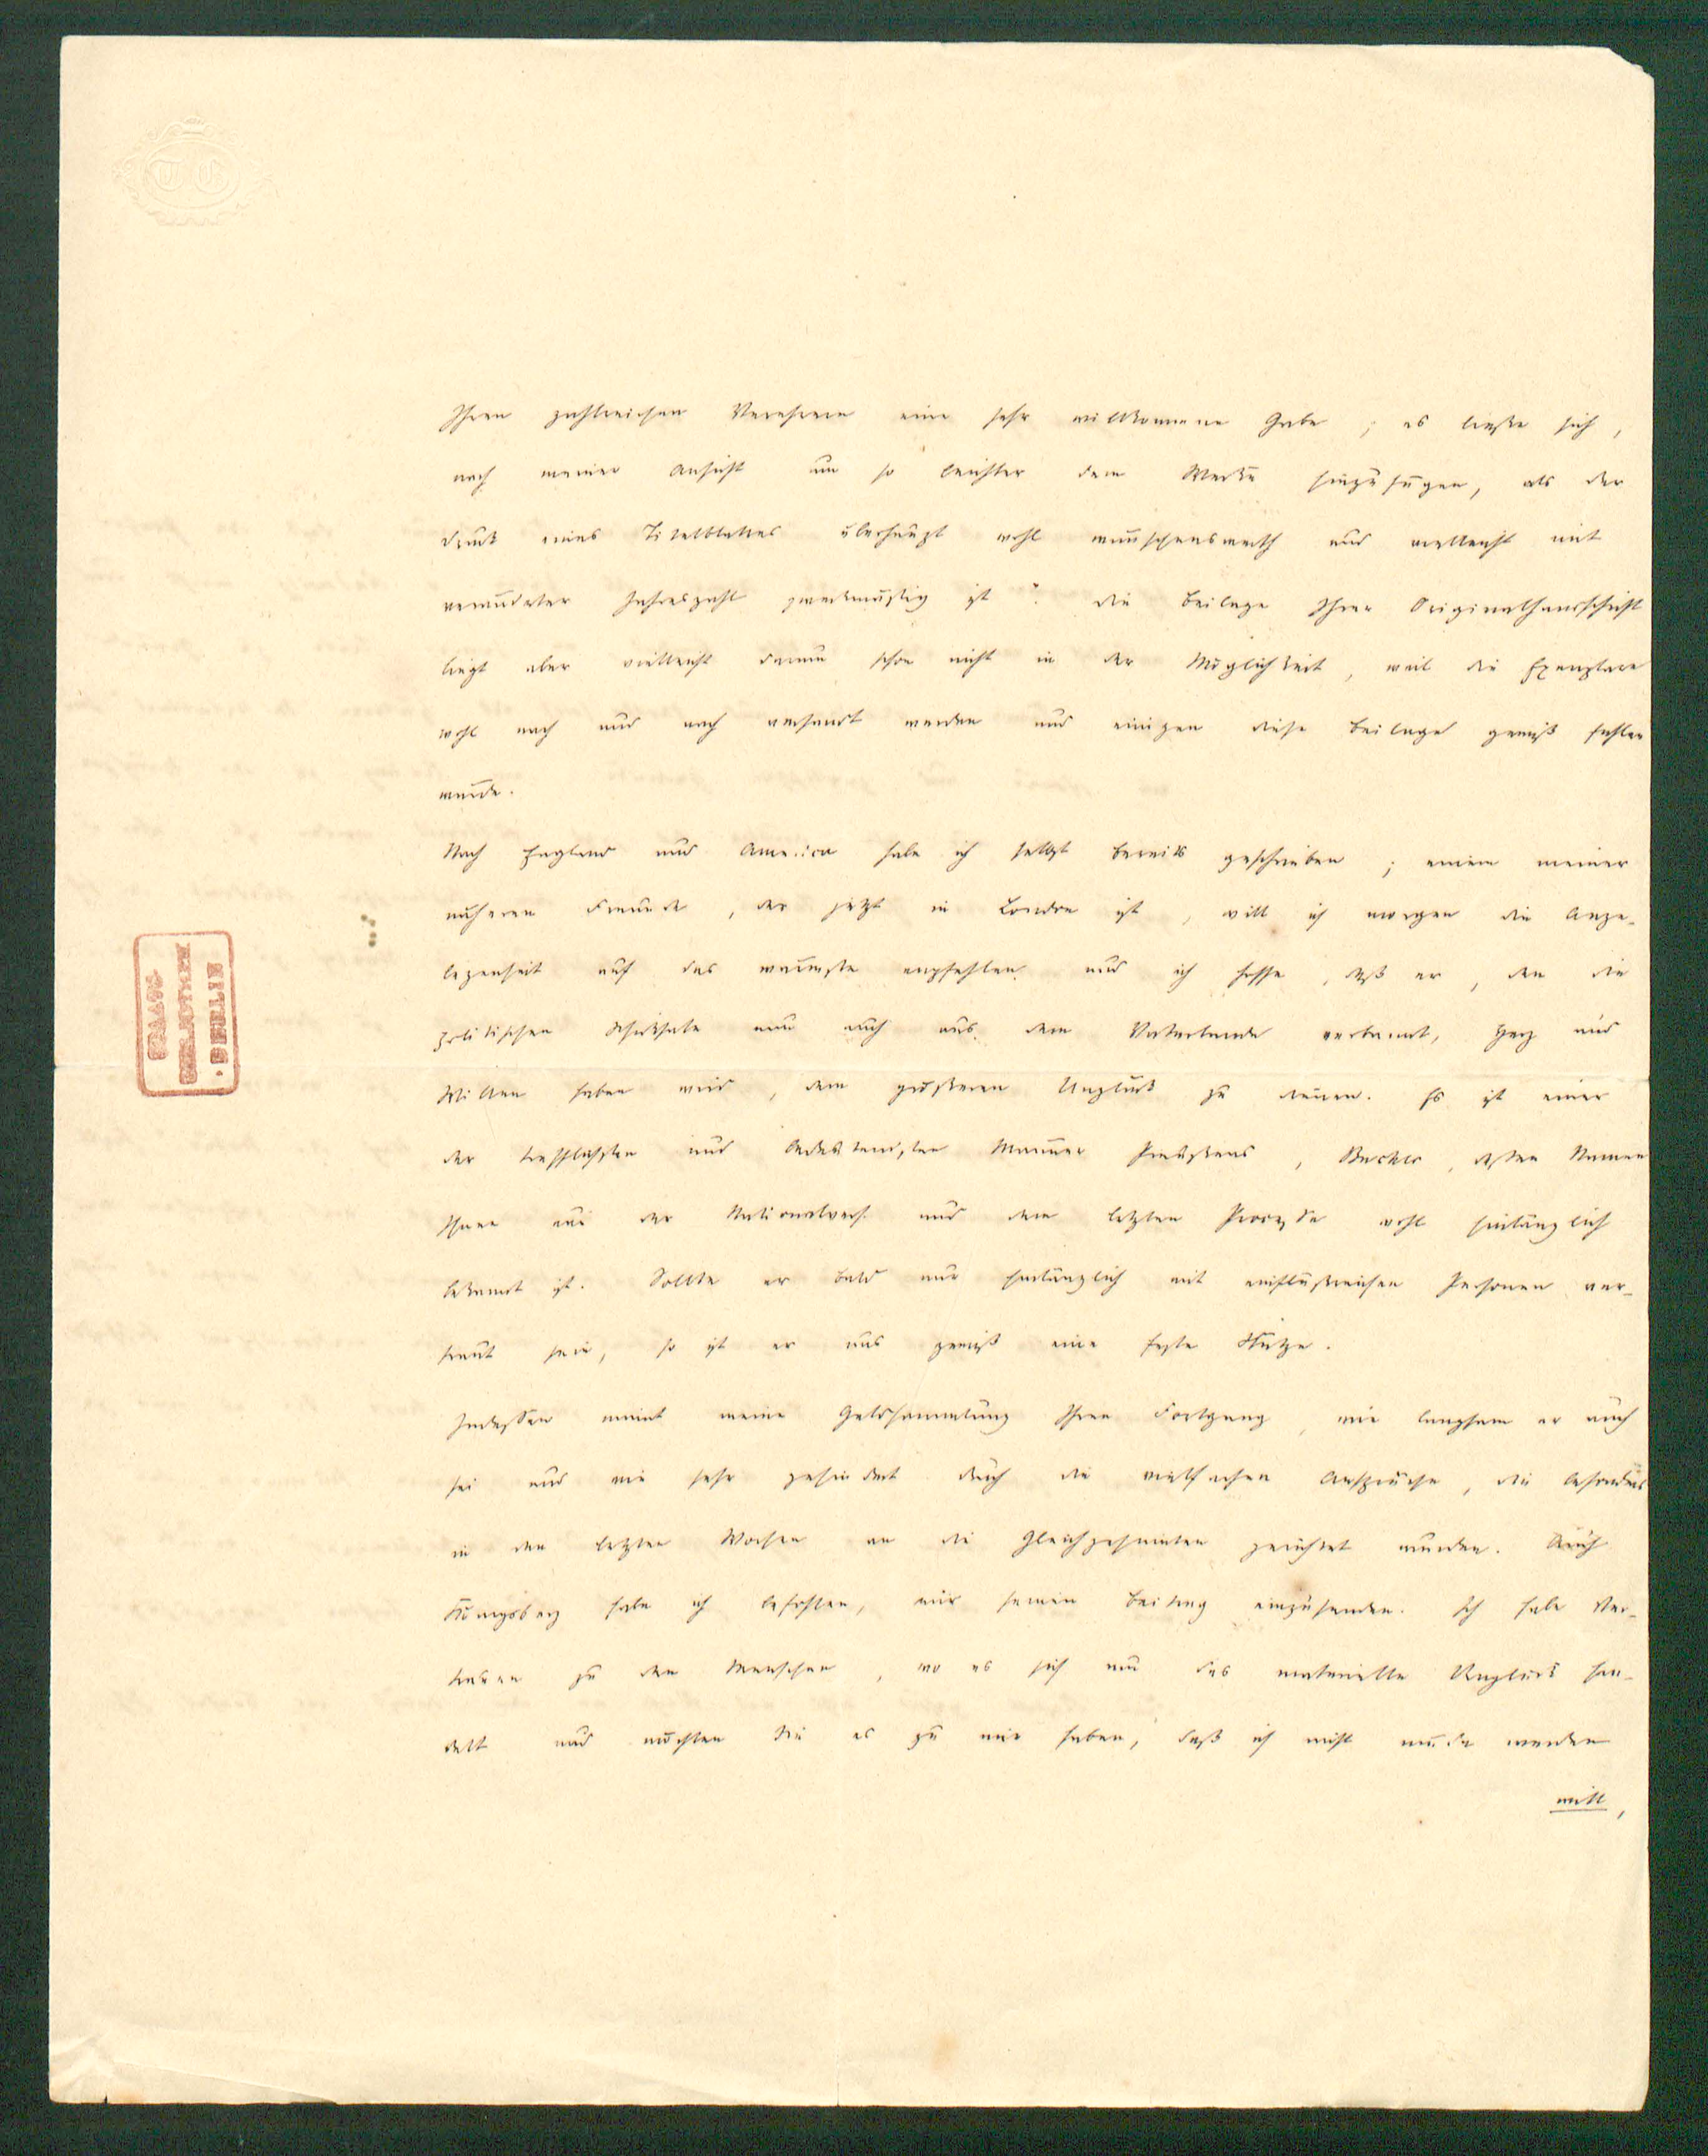 Ihren zahlreichen Verehrern eine sehr willkommene Gabe; es ließe sich,
nach meiner Ansicht um so leichter dem Werke hinzufügen, als der
Druck eines Titelblattes überhaupt wohl wünschenswerth und vielleicht mit
veränderter Jahreszahl zweckmäßig ist. Die Beilage Ihrer Originalhandschrift
liegt aber vielleicht darum schon nicht in der Möglichkeit, weil die Exemplare
wohl nach und nach versandt werden und einigen diese Beilage gewiß fehlen
würde.
Nach England und America habe ich selbst bereits geschrieben; einem meiner
näheren Freunde, der jetzt in London ist, will ich morgen die Ange-
legenheit auf das wärmste empfehlen und ich hoffe, daß er, den die
politischen Schicksale nun auch aus dem Vaterlande verbannt, Herz und
Willen haben wird, dem größeren Unglück zu dienen. Es ist einer
der trefflichsten und bedeutendsten Männer Preußens, Bucher, dessen Namen
Ihnen aus der Nationalvers. und dem letzten Prozesse wohl hinlänglich
bekannt ist. Sollte er bald nur hinlänglich mit einflußreichen Personen ver-
traut sein, so ist er uns gewiß eine feste Stütze.
Indessen nimmt meine Geldsammlung Ihren Fortgang, wie langsam er auch
sei und wie sehr gehindert durch die vielfachen Ansprüche, die besonders
in den letzten Wochen an die Gleichgesinnten gerichtet wurden. Auch
Königsberg habe ich befohlen, mir seinen Beitrag einzusenden. Ich habe Ver-
trauen zu den Menschen, wo es sich um das materielle Unglück han-
delt und möchten Sie es zu mir haben, daß ich nicht müde werden
will,
STAATS
BIBLIOTHEK
· BERLIN